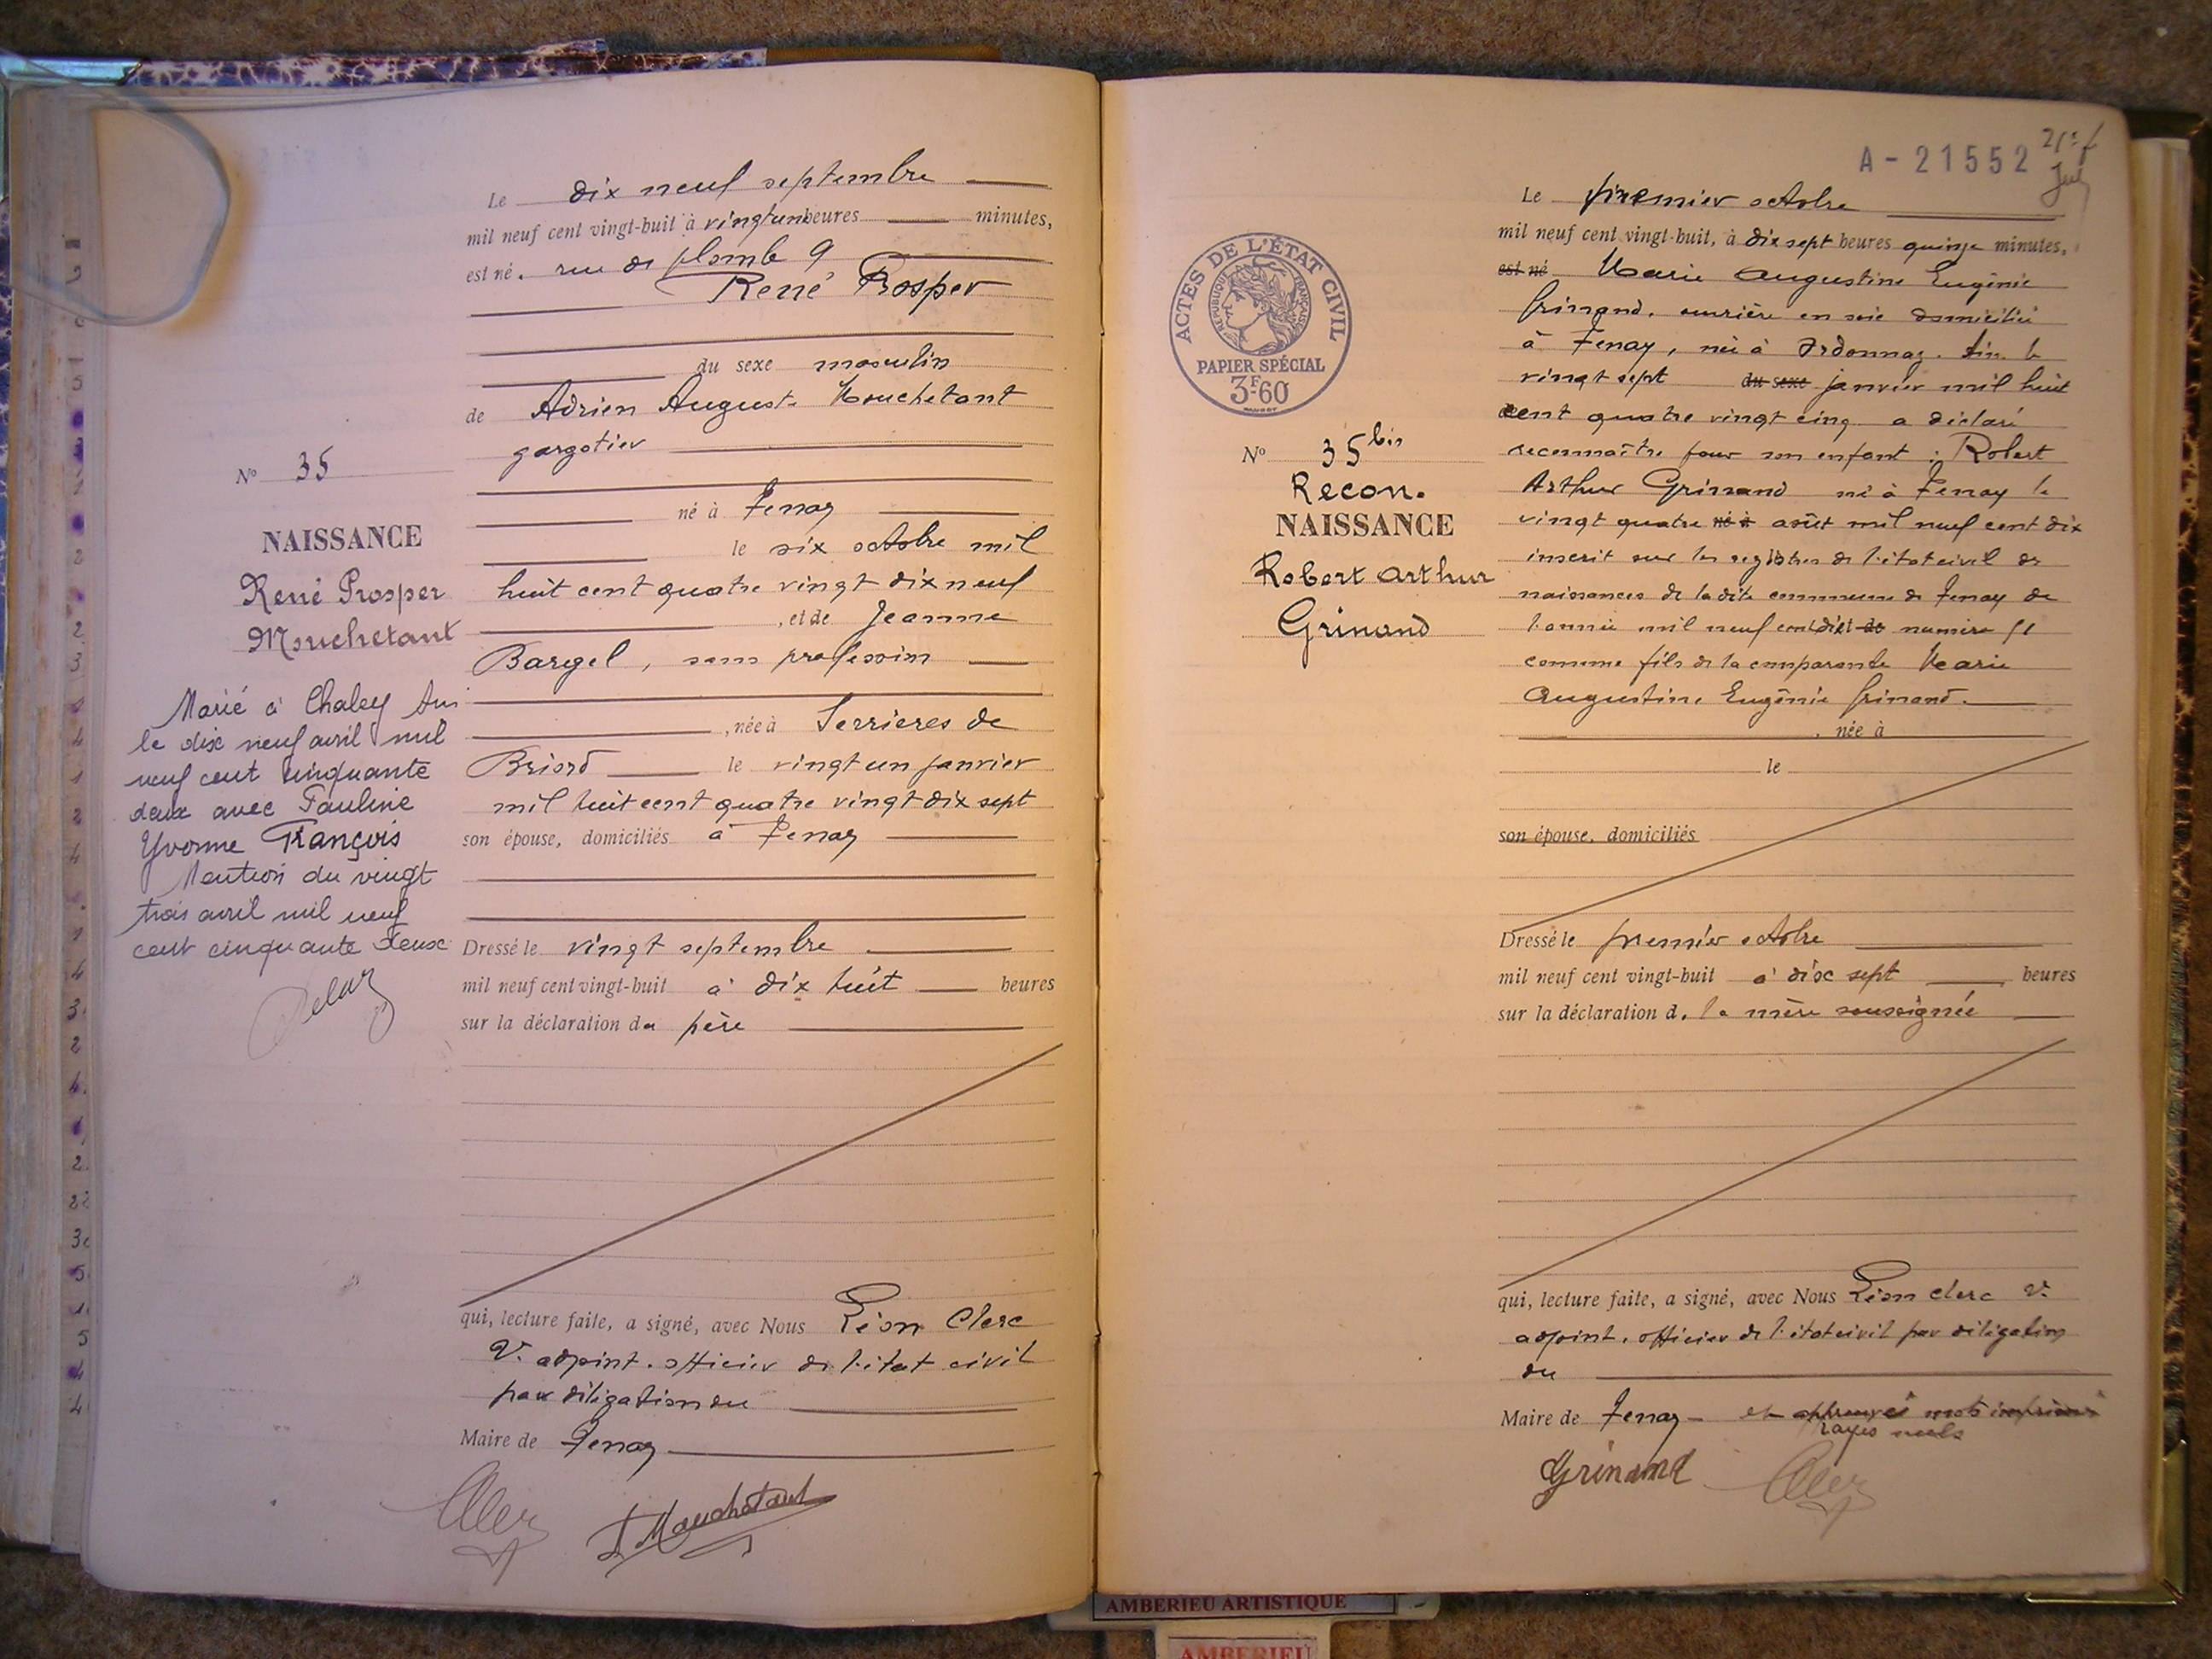 Le dix neuf septembre
mil neuf cent vingt-huit à vingt un heures minutes,
est né. rue de plomb 9
René Prosper
du sexe masculin
de Adrien Auguste Mouchetant
gargotier
né à Tenay
le six octobre mil
huit cent quatre vingt dix neuf
, et de Jeanne
Bargel, sans profession
, née à Serrieres de
Briord le vingt un janvier
mil huit cent quatre vingt dix sept
son épouse, domiciliés à Tenay
Dressé le vingt septembre
mil neuf cent vingt-huit à dix huit heures
sur la déclaration du père
qui, lecture faite, a signé, avec Nous Léon Clerc
adjoint. officier de l'état civil
par déligation du
Maire de Tenay
Mouchetant
N° 35
NAISSANCE
René Prosper
Mouchetant
Marié à Chaley Ain
le dix neuf avril mil
neuf cent cinquante
deux avec Pauline
Yvonne François
Mention du vingt
trois avril mil neuf
cent cinquante deux
A-21552
Le premier octobre
mil neuf cent vingt-huit, à dix sept heures quinze minutes,
est né Marie Augustine Eugénie
Grinand. ouvrière en soie domicilié
à Tenay, née à Ordonnaz. Ain. le
vingt sept du sexe janvier mil huit
cent quatre vingt cinq a déclaré
reconnaître pour son enfant : Robert
Arthur Grinand né à Tenay le
vingt quatre né à août mil neuf cent dix
inscrit sur les registres de l'état civil de
naissances de la dite commune de Tenay de
l'année mil neuf cent dix et de numéro
comme fils de la comparante Marie
Augustine Eugénie Grinand.
, née à
le
son épouse, domiciliés
Dressé le premier octobre
mil neuf cent vingt-huit à dix sept heures
sur la déclaration d. la mère soussignée
qui, lecture faite, a signé, avec Nous Léon Clerc
adjoint. officier de l'état civil par déligation
du
Maire de Tenay - et approuvés mots imprimés
rayés nuls
Grinand
ACTES DE L'ÉTAT CIVIL
RÉPUBLIQUE FRANÇAISE
PAPIER SPÉCIAL
3F-60
N° 35 bis
Recon.
NAISSANCE
Robert Arthur
Grinand
AMBERIEU ARTISTIQUE
AMBERIEU